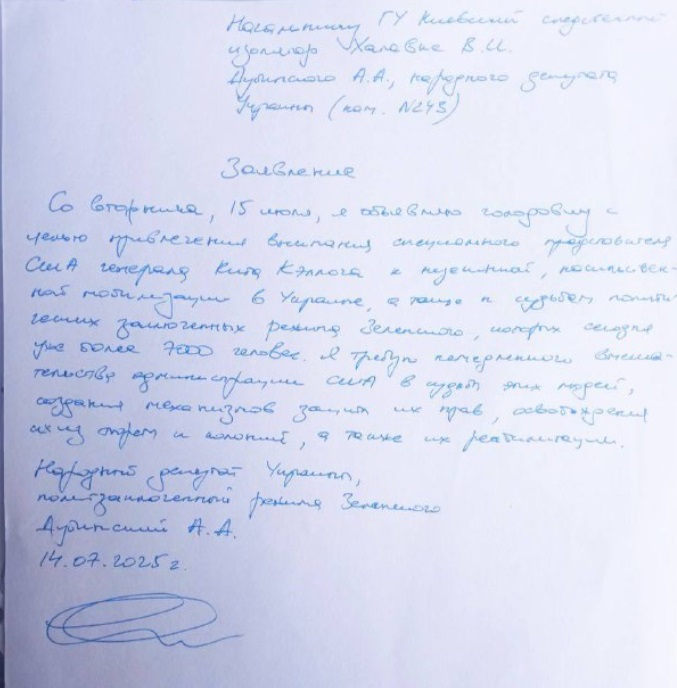 Начальнику ГУ Киевский следственный
изолятор Халавке В.И.
Дубинского А.А., народного депутата
Украины (кам. N243)
Заявление
Со вторника, 15 июля, я объявляю голодовку с
целью привлечения внимания специального представителя
США генерала Кита Кэллога к незаконной, насильствен-
ной мобилизации в Украине, а также к судьбам полити-
ческих заключенных режима Зеленского, которых сегодня
уже более 7000 человек. Я требую немедленного вмеша-
тельства администрации США в судьбы этих людей,
создания механизмов защиты их прав, освобождения
их из тюрем и колоний, а также их реабилитации.
Народный депутат Украины,
политзаключенный режима Зеленского
Дубинский А.А.
14.07.2025 г.